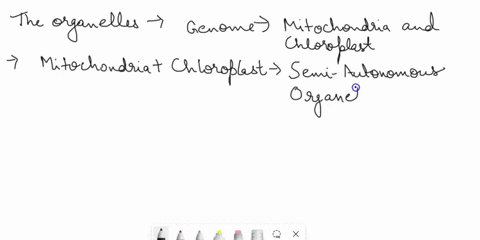 The organelles → Genome → Mitochondria and Chloroplast
→ Mitochondria + Chloroplast → Semi-Autonomous
Organe